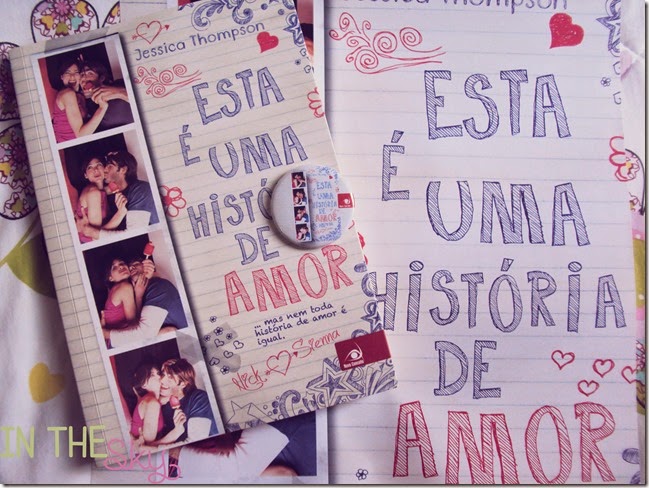 Jessica Thompson
ESTA
É UMA
HISTÓRIA
DE
AMOR
... mas nem toda
história de amor é
igual.
Nick Sienna
Jessica Thompson
ESTA
É
UMA
HISTÓRIA
DE
AMOR
ESTA
É UMA
HISTÓRIA
DE
AMOR
IN THE
Sky